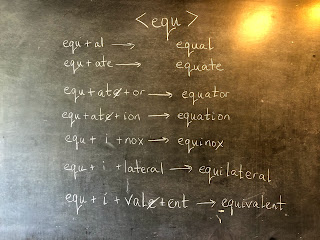 <equ>
equ + al → equal
equ + ate → equate
equ + ate + or → equator
equ + ate + ion → equation
equ + i + nox → equinox
equ + i + lateral → equilateral
equ + i + vale + ent → equivalent